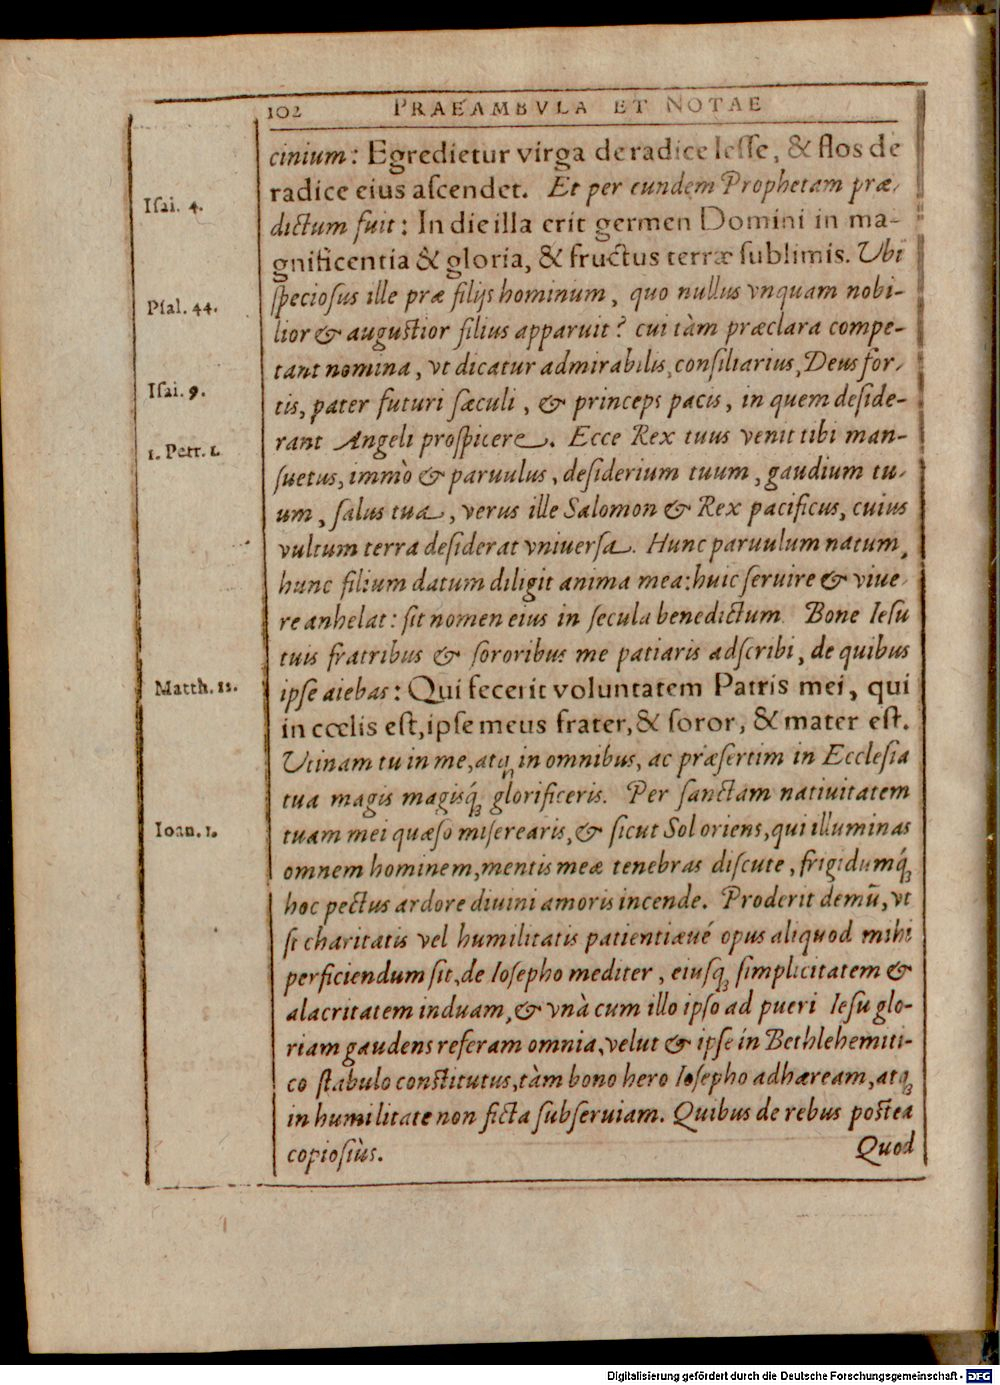 102 PRAEAMBVLA ET NOTAE
cinium: Egredietur virga de radice Iesse, & flos de
radice eius ascendet. Et per eundem Prophetam præ-
Isai. 4.
dictum fuit: In die illa erit germen Domini in ma-
gnificentia & gloria, & fructus terræ sublimis. Vbi
Psal. 44.
speciosus ille præ filijs hominum, quo nullus vnquam nobi-
lior & augustior filius apparuit? cui tàm præclara compe-
tant nomina, vt dicatur admirabilis, consiliarius, Deus for-
Isai. 9.
tis, pater futuri sæculi, & princeps pacis, in quem deside-
1. Petr. 1.
rant Angeli prospicere. Ecce Rex tuus venit tibi man-
suetus, immò & paruulus, desiderium tuum, gaudium tu-
um, salus tua, verus ille Salomon & Rex pacificus, cuius
vultum terra desiderat vniuersa. Hunc paruulum natum,
hunc filium datum diligit anima mea: huic seruire & viue-
re anhelat: sit nomen eius in secula benedictum. Bone Iesu
tuis fratribus & sororibus me patiaris adscribi, de quibus
Matth. 12.
ipse aiebas: Qui fecerit voluntatem Patris mei, qui
in cœlis est, ipse meus frater, & soror, & mater est.
Vtinam tu in me, atq; in omnibus, ac præsertim in Ecclesia
tua magis magisq́; glorificeris. Per sanctam natiuitatem
Ioan. 1.
tuam mei quæso miserearis, & sicut Sol oriens, qui illuminas
omnem hominem, mentis meæ tenebras discute, frigidumq́;
hoc pectus ardore diuini amoris incende. Proderit demũ, vt
si charitatis vel humilitatis patientiæué opus aliquod mihi
perficiendum sit, de Iosepho mediter, eiusq; simplicitatem &
alacritatem induam, & vnà cum illo ipso ad pueri Iesu glo-
riam gaudens referam omnia, velut & ipse in Bethlehemiti-
co stabulo constitutus, tàm bono hero Iosepho adhæream, atq;
in humilitate non ficta subseruiam. Quibus de rebus postea
copiosiùs.
Quod
Digitalisierung gefördert durch die Deutsche Forschungsgemeinschaft - DFG